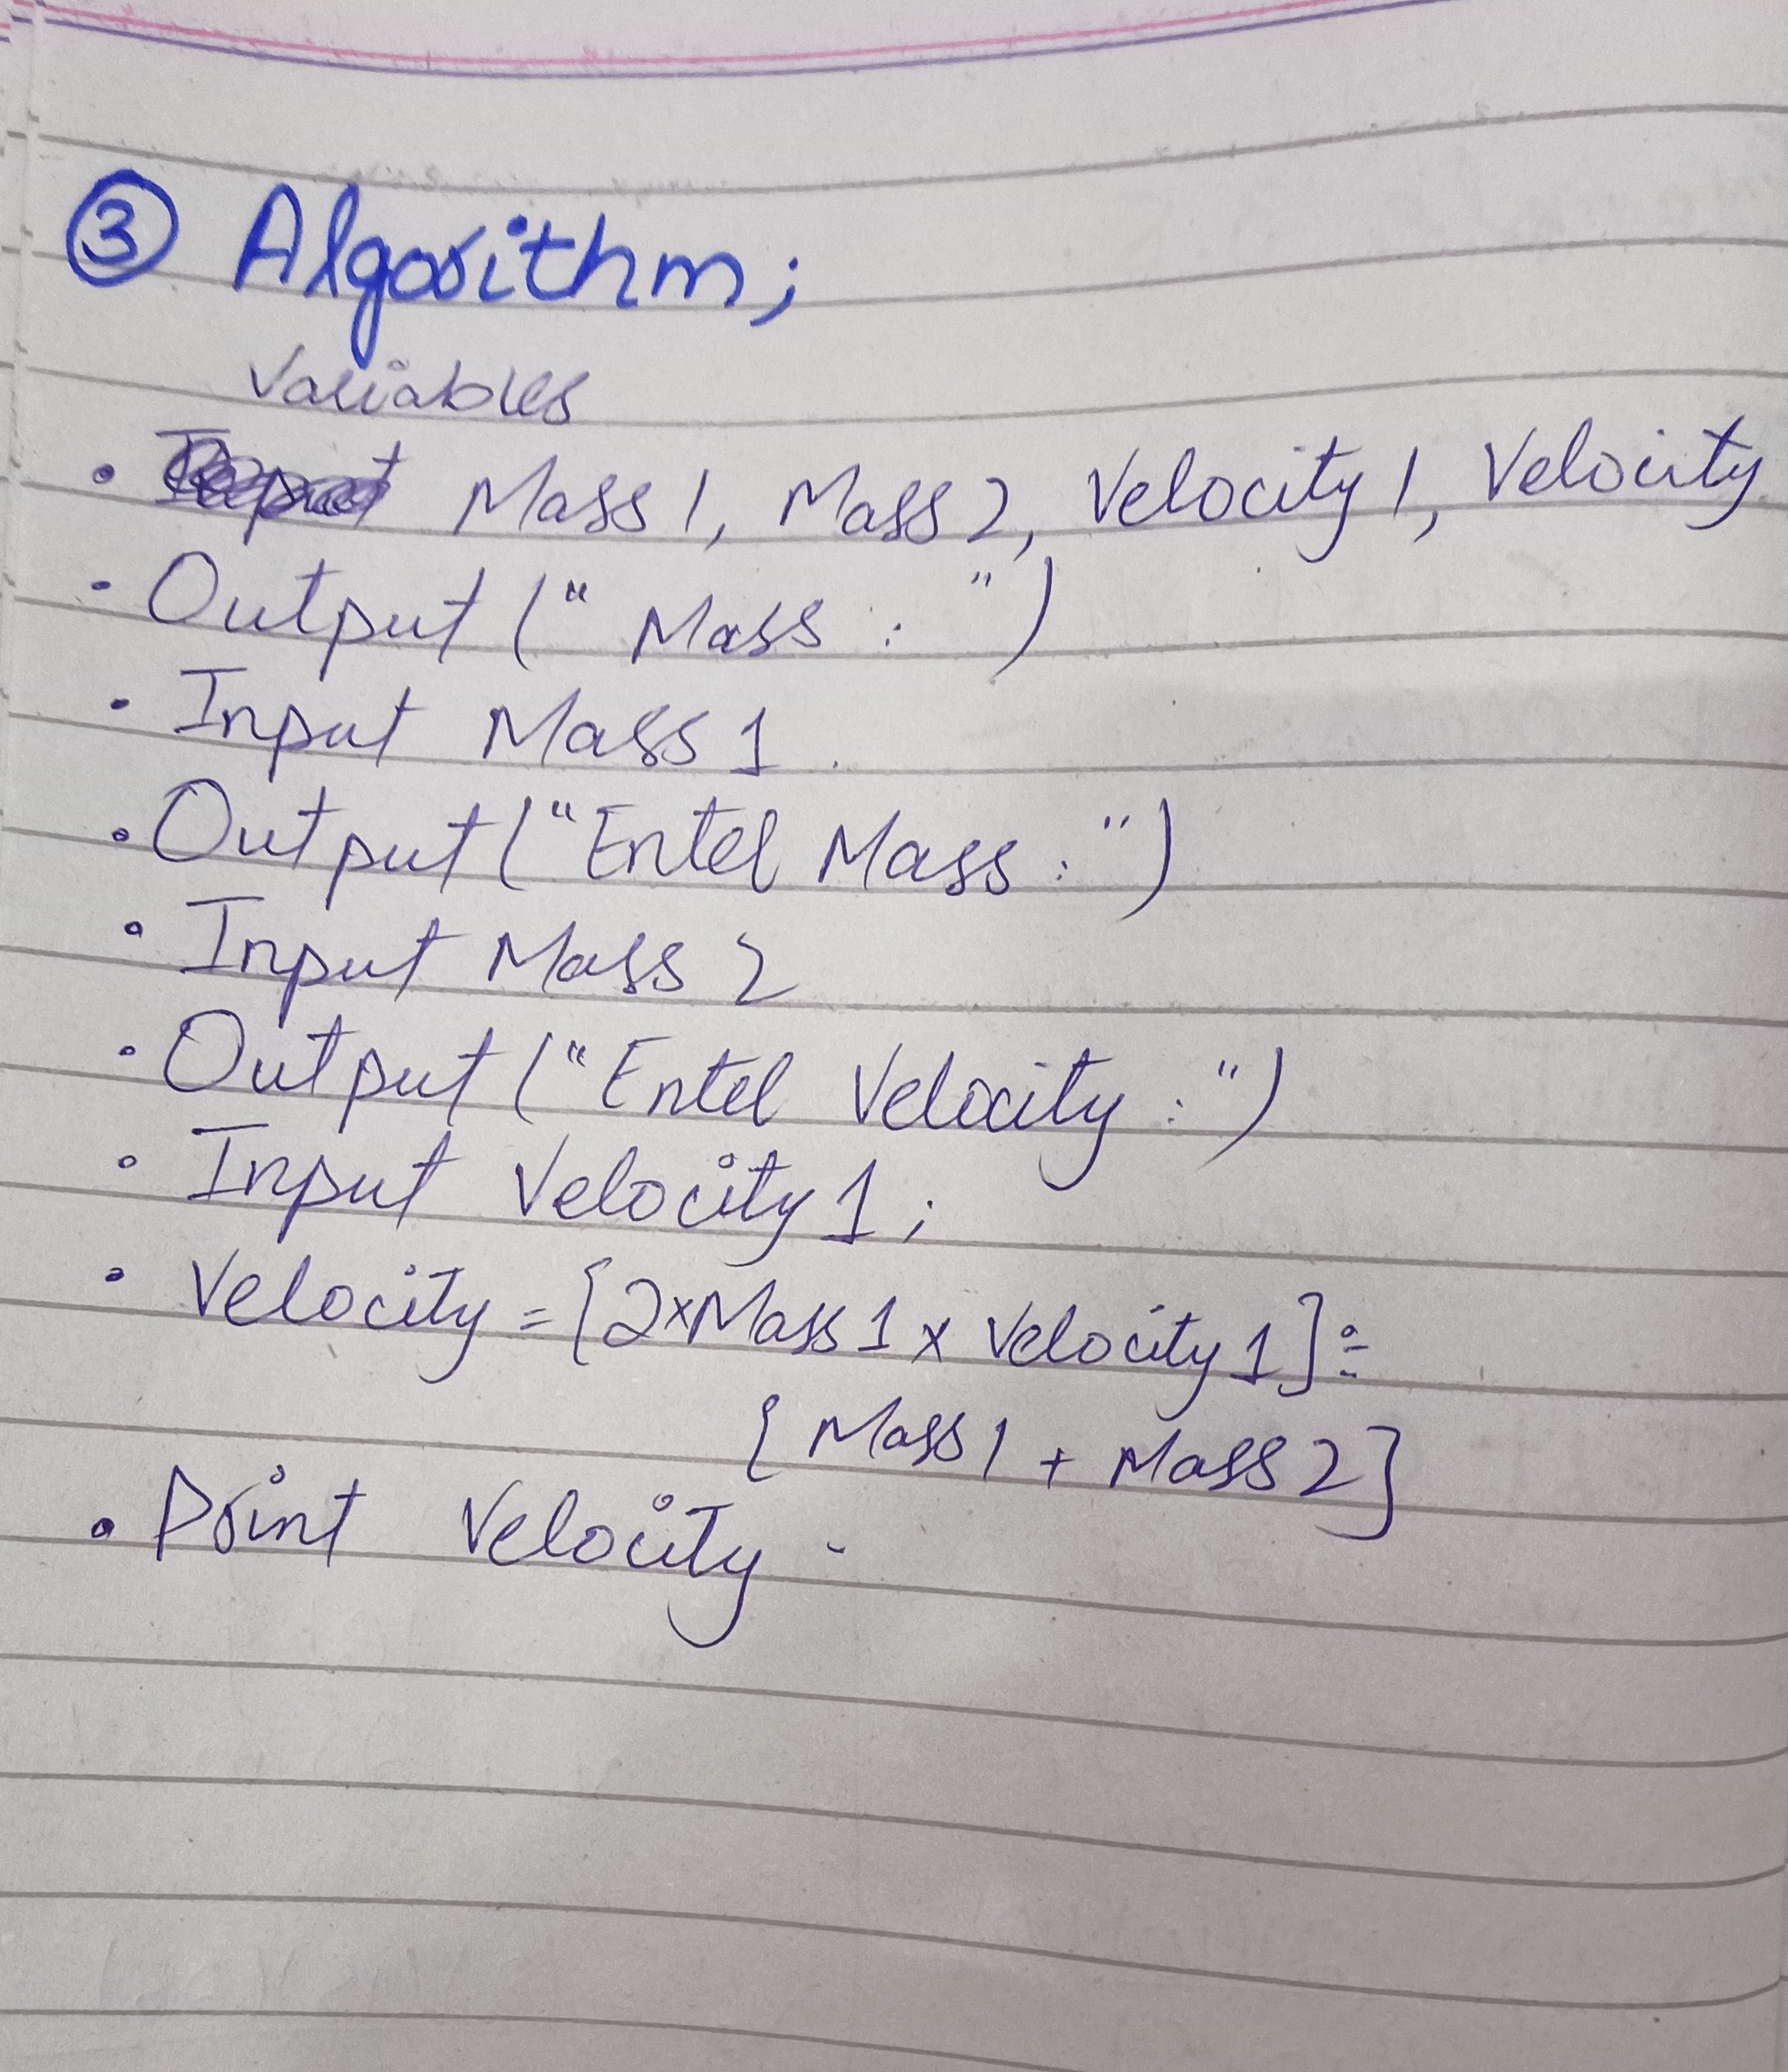 ③ Algorithm;
Variables
• Mass 1, Mass 2, Velocity 1, Velocity
• Output (" Mass : ")
• Input Mass 1
• Output ("Enter Mass : ")
• Input Mass 2
• Output ("Enter Velocity : ")
• Input Velocity 1;
• Velocity = [2×Mass 1 × Velocity 1] ÷
[Mass 1 + Mass 2]
• Print Velocity.